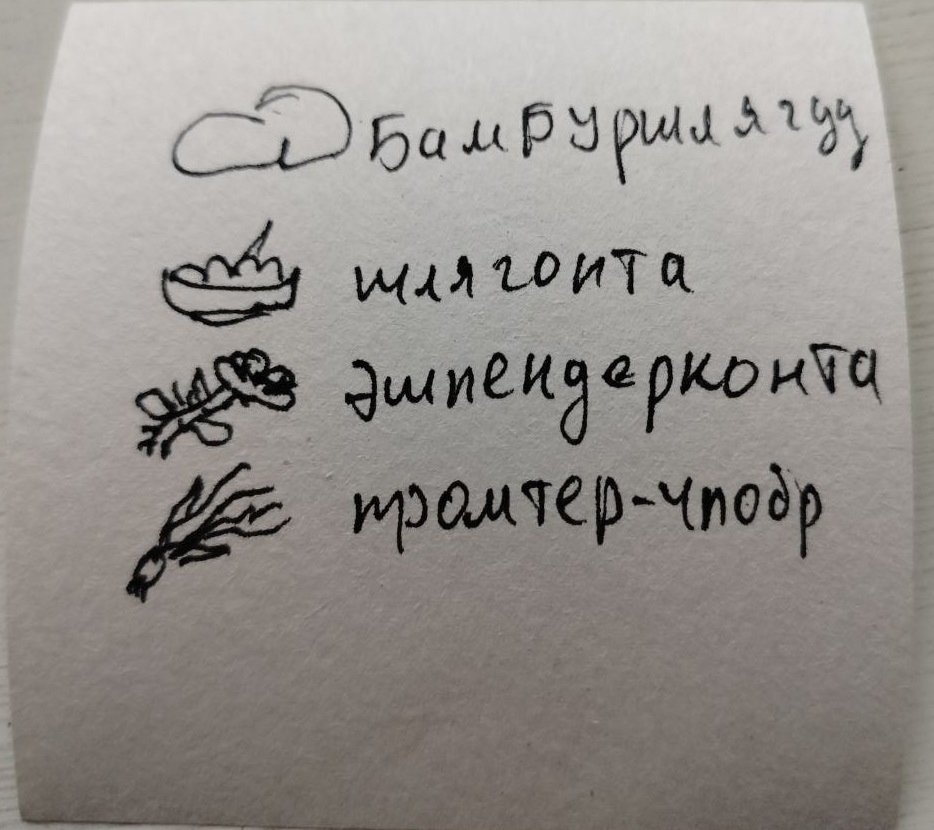 Бамбуршлягуд
шлягонта
эшпендерконта
тромтер-чподр